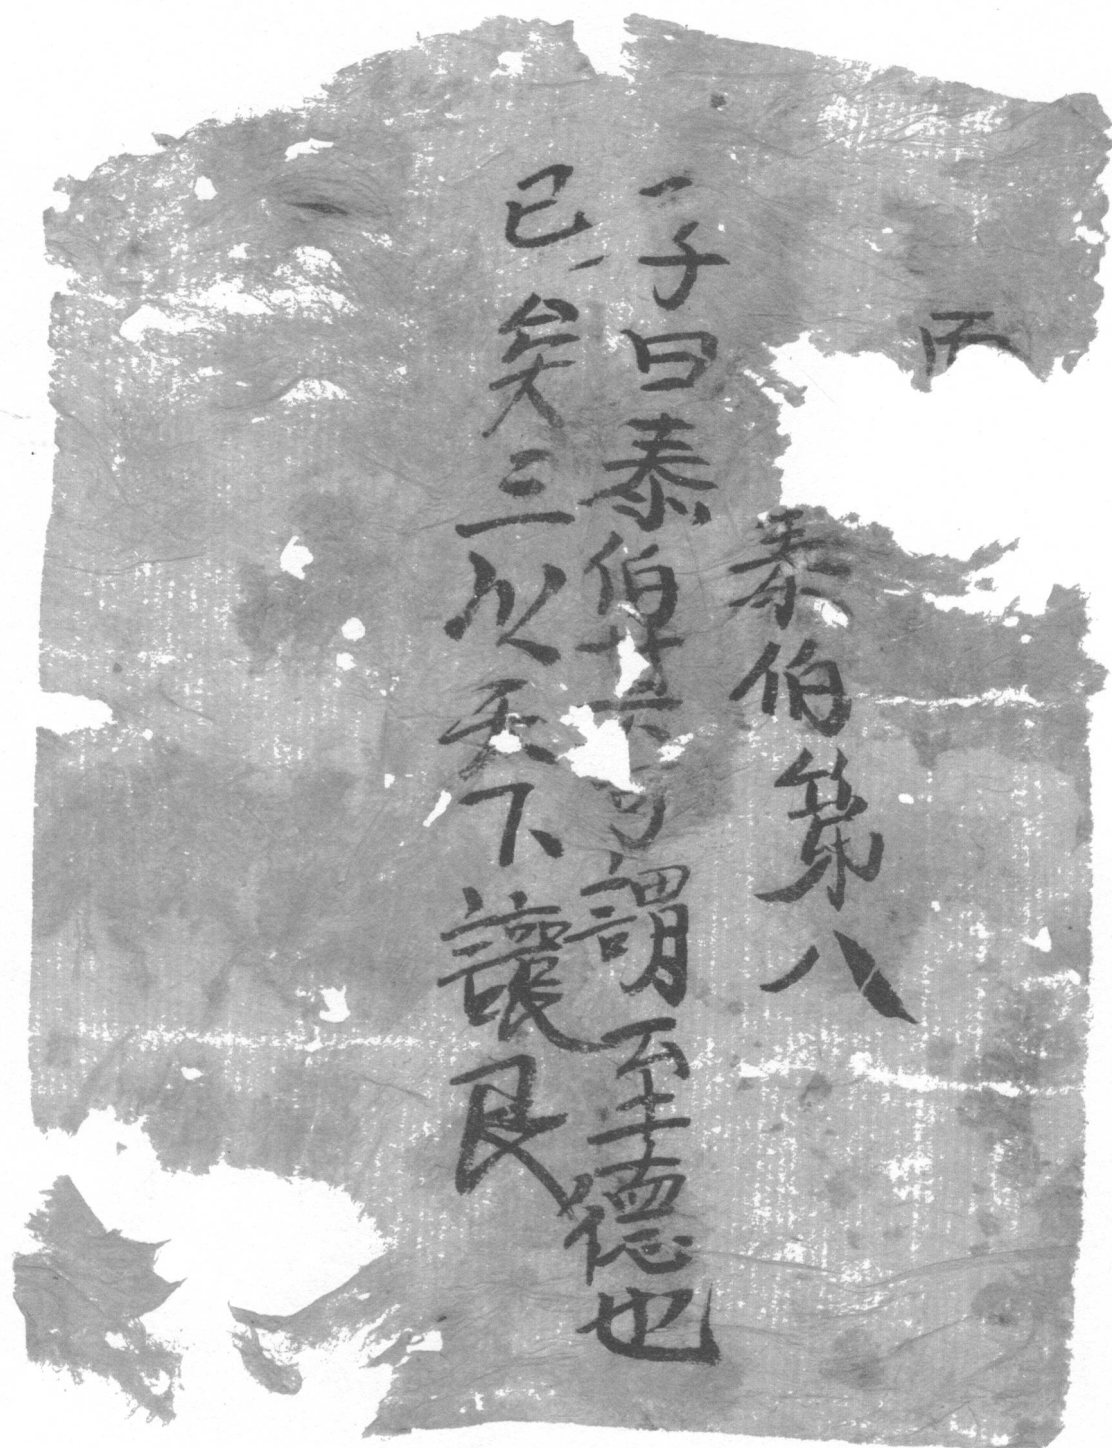 而
泰伯第八
子曰泰伯其可謂至德也
已矣三以天下讓民